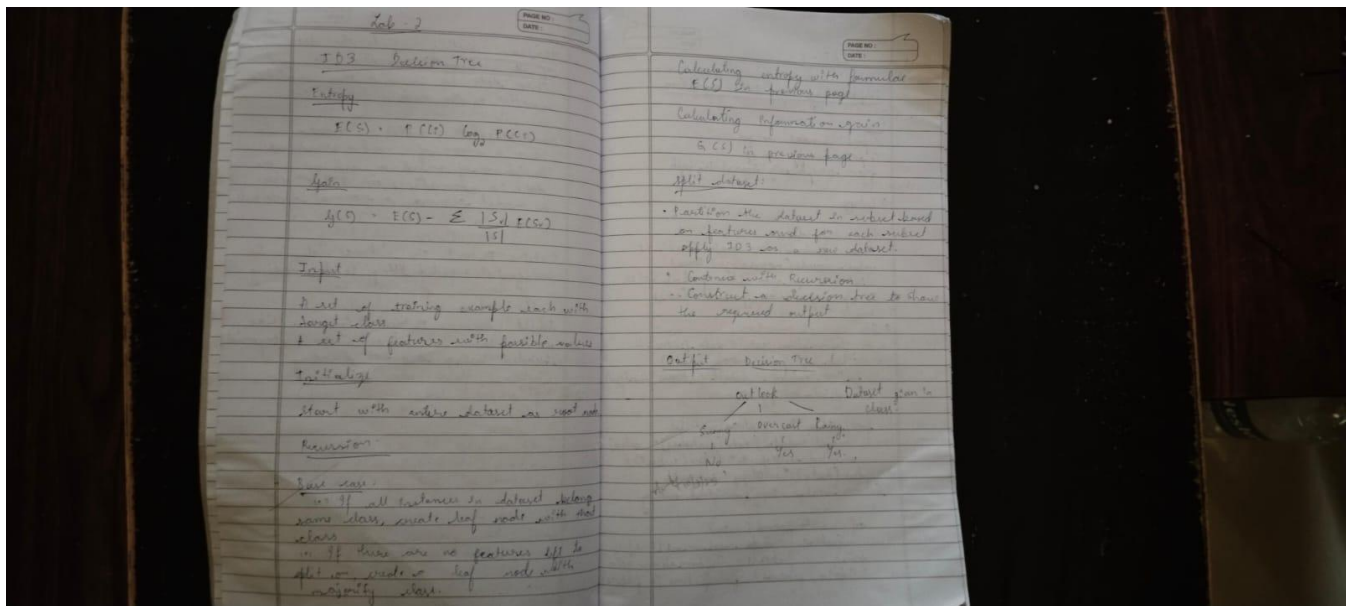 Lab - 2
PAGE NO :
DATE :
ID3 Decision Tree
Entropy
E(S) = P(Ci) log2 P(Ci)
Gain
G(S) = E(S) - Σ |Sv| E(Sv)
|S|
Input
A set of training example each with
target class
A set of features with possible values
Initialize
Start with entire dataset as root node
Recursion
Base case:
If all instances in dataset belong
same class, create leaf node with that
class
If there are no features left to
split on create a leaf node with
majority class.
PAGE NO :
DATE :
Calculating entropy with formulae
E(S) in previous page
Calculating Information gain
G(S) in previous page
Split dataset:
• Partition the dataset in subset based
on features and for each subset
apply ID3 as a new dataset.
• Continue with Recursion
Construct a decision tree to show
the required output
Output Decision Tree
outlook Dataset given in
class
Sunny Overcast Rainy
No Yes Yes